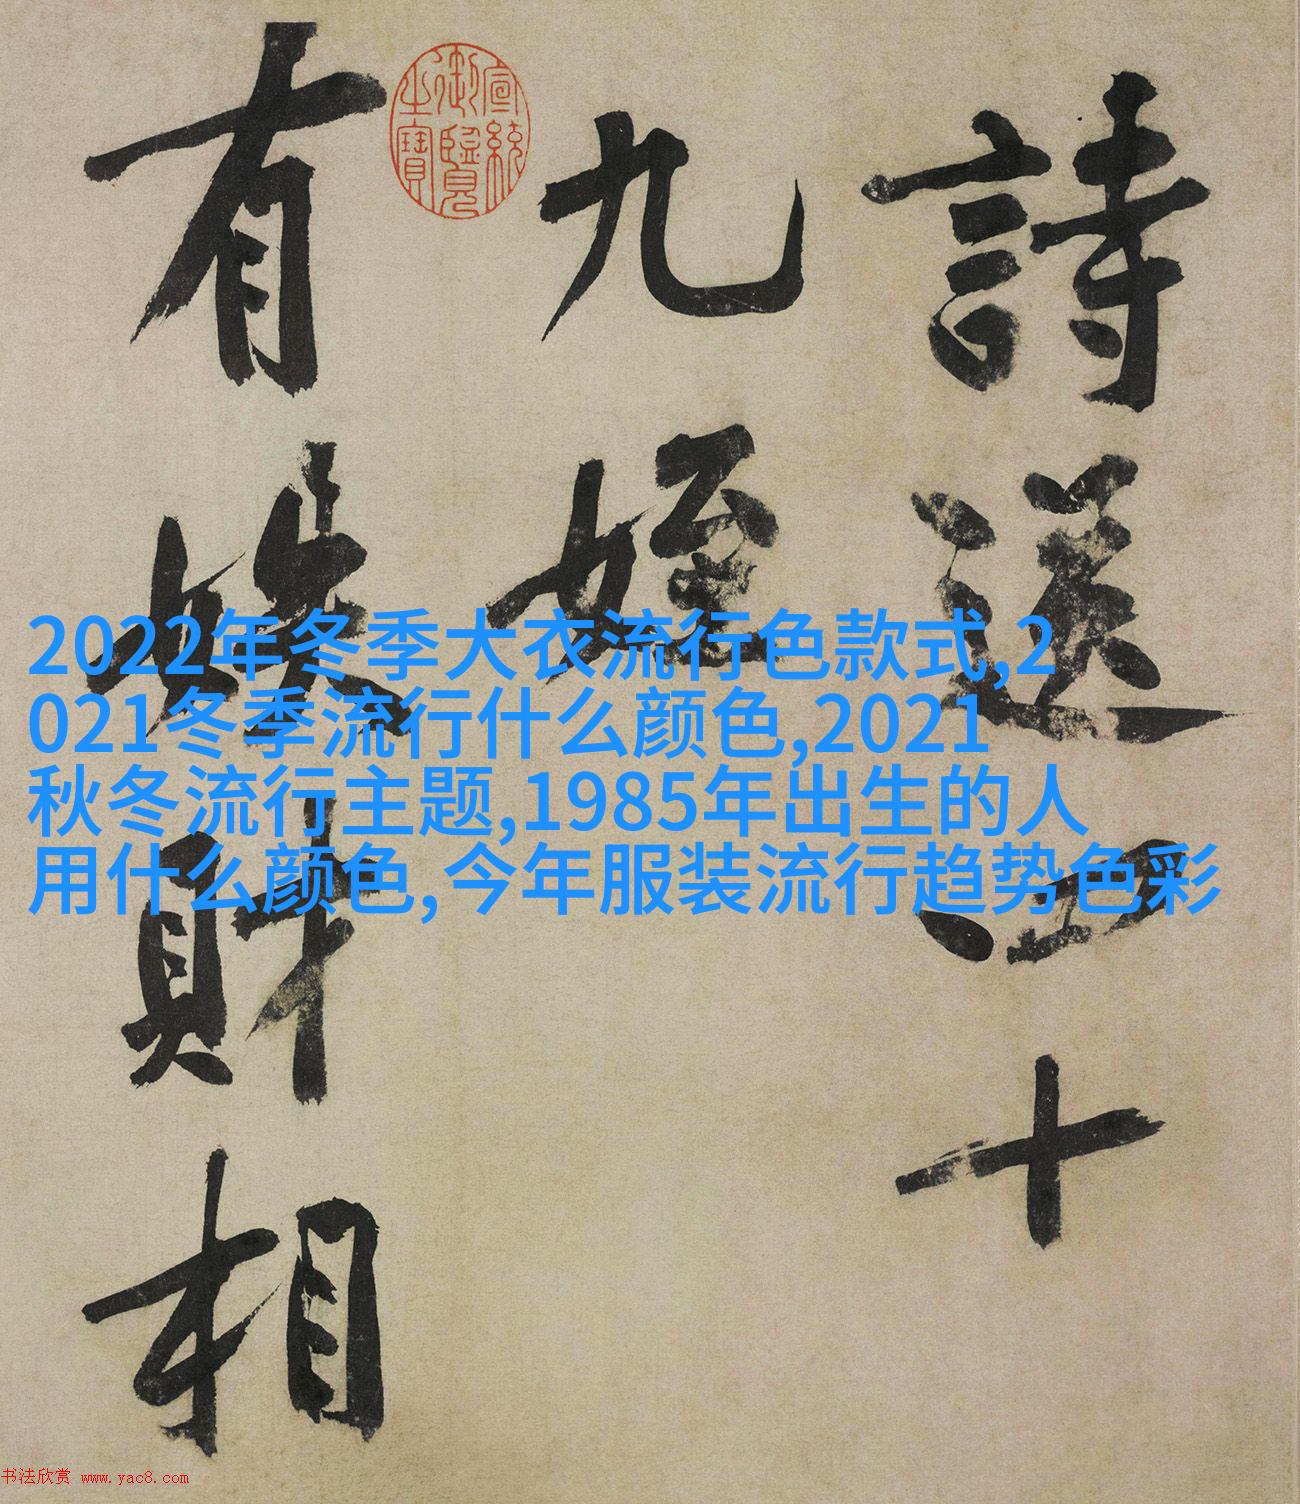 詩送四十
九姪
有財相
宣統
御覽
之寶
2022年冬季大衣流行色款式,2
021冬季流行什么颜色,2021
秋冬流行主题,1985年出生的人
用什么颜色,今年服装流行趋势色彩
书法欣赏 www.yac8.com